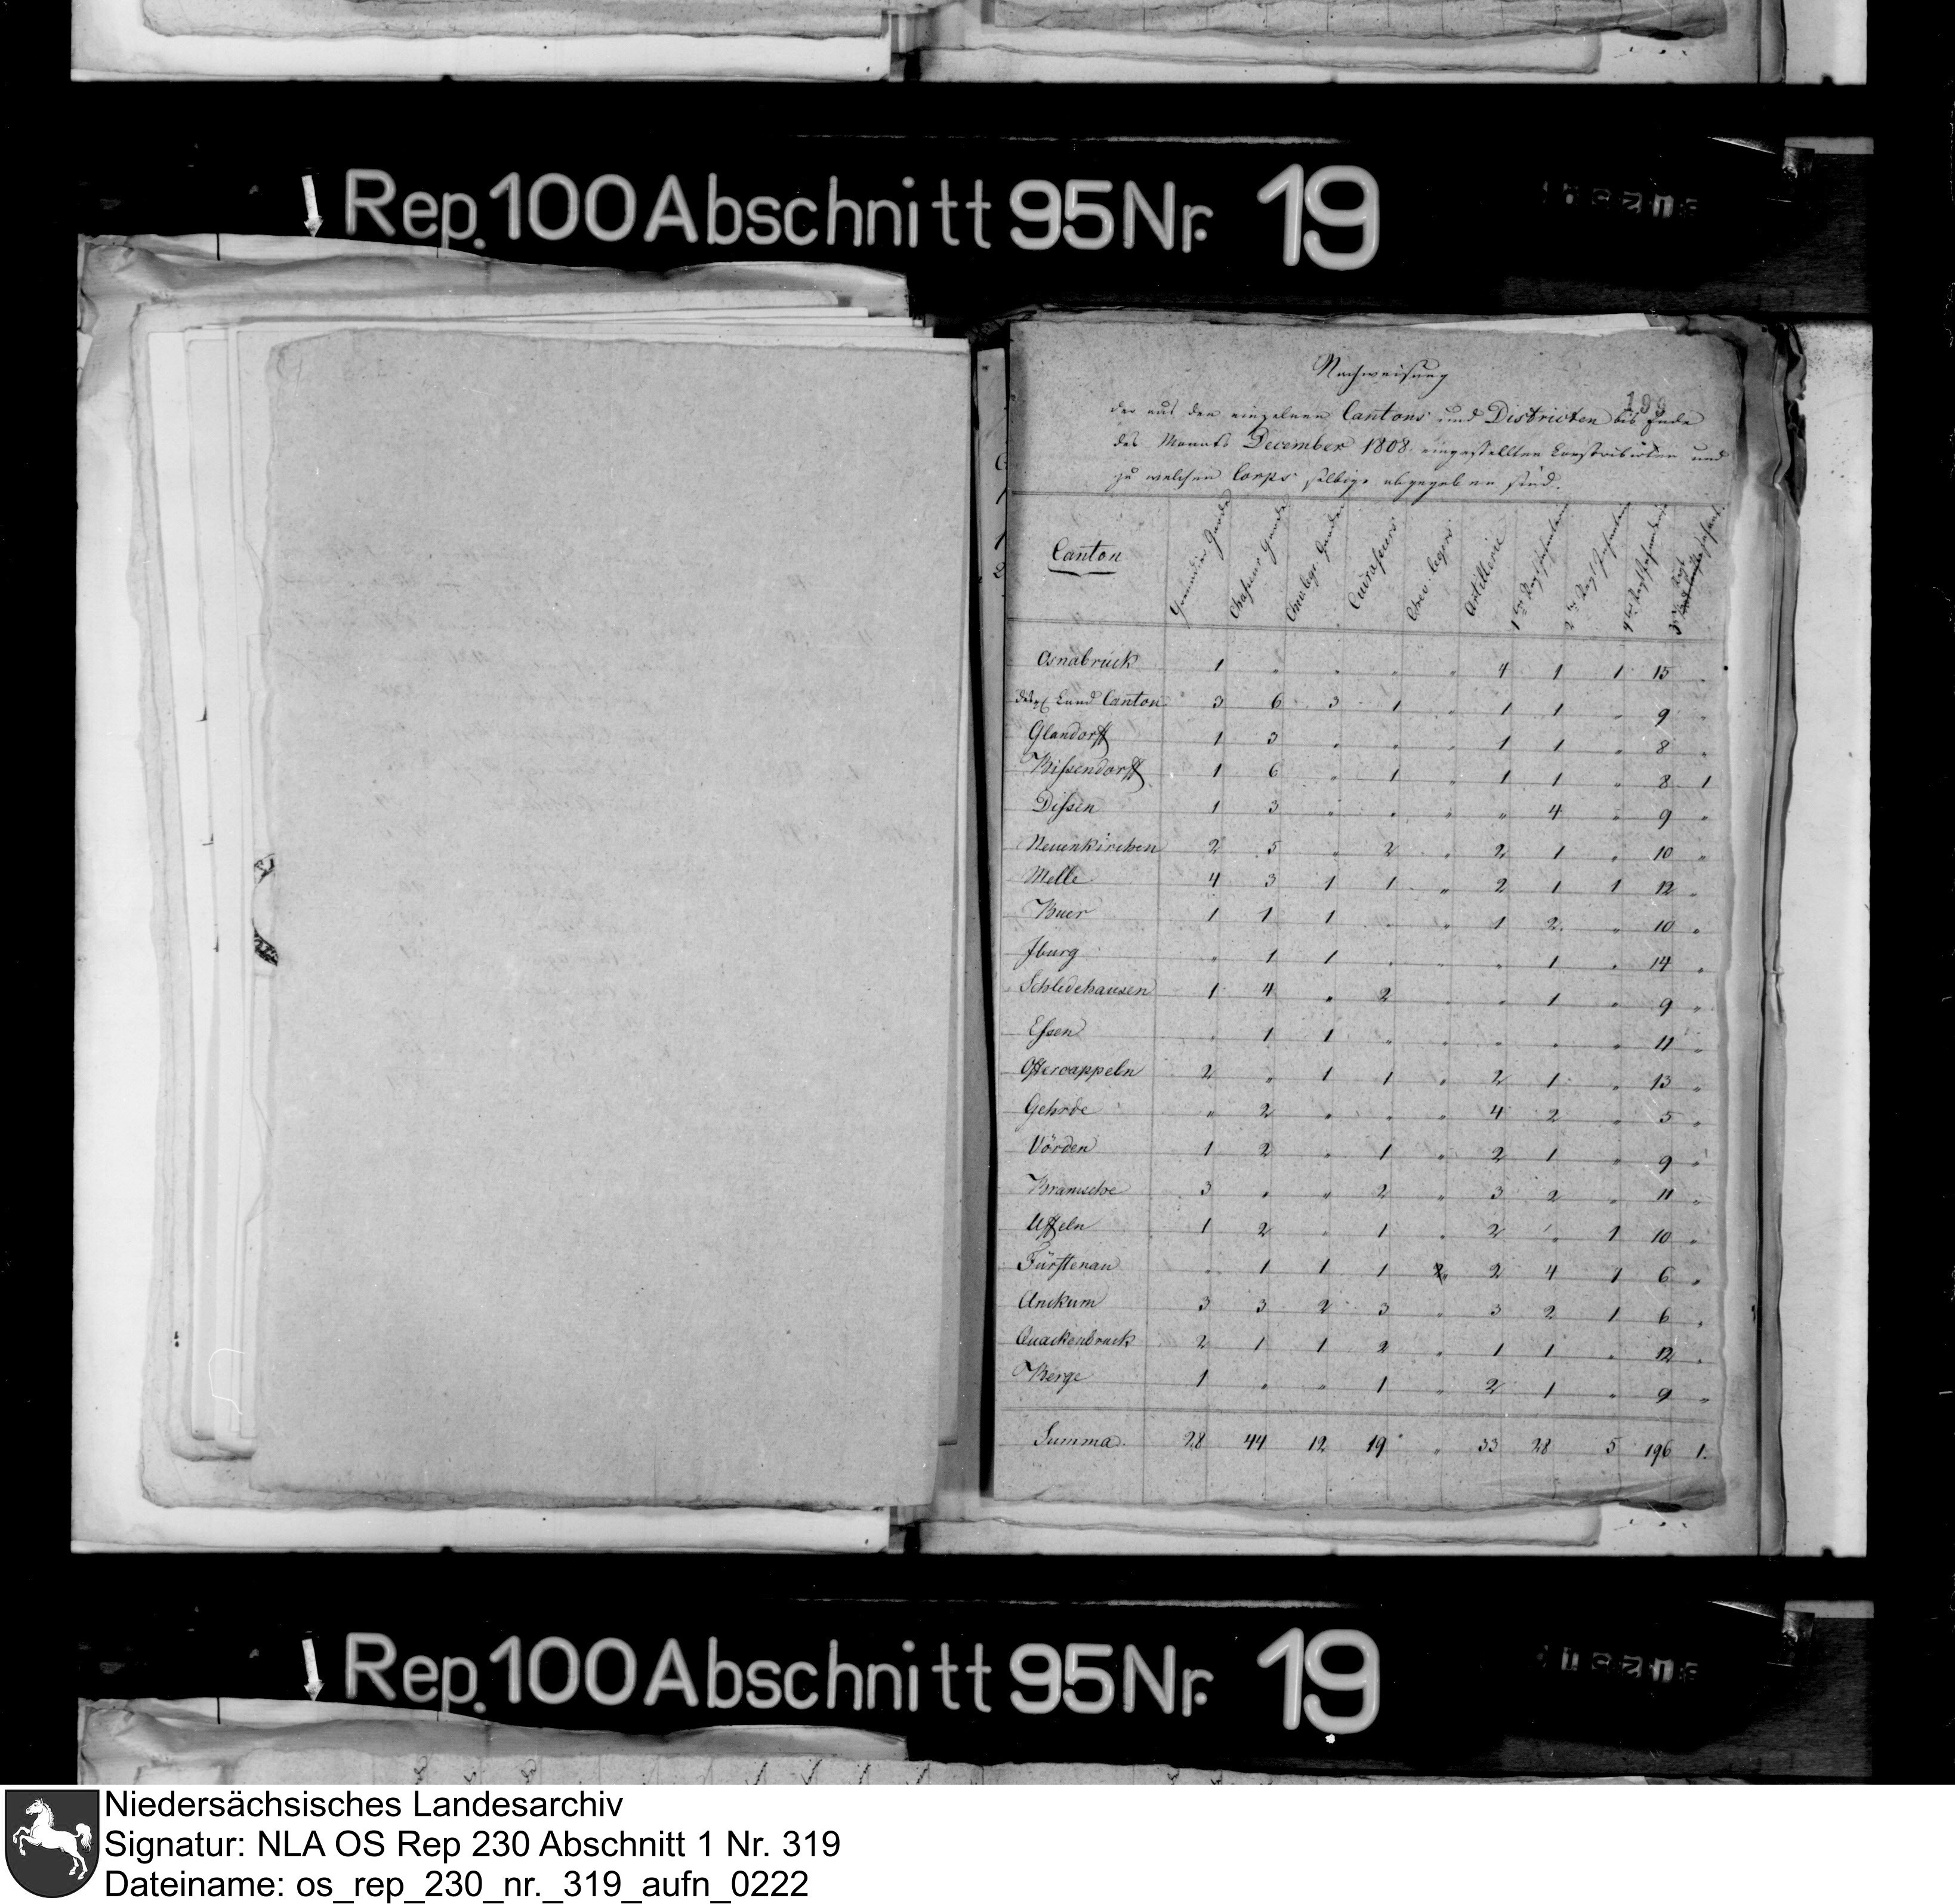 Rep. 100 Abschnitt 95 Nr. 19
Nachweisung
199
der aus den einzelnen Cantons und Districten bis Ende
des Monats December 1808 eingestellten Conscribirten und
zu welchen Corps selbige abgegeben sind.
Canton Grenadier Garde Chasseur Garde Chevalegr. Garde Cuirassiers Chev. legers Artillerie 1tes Regt Infanterie 2tes Regt Infanterie 4tes Regt Infanterie 3tes Regt Infant.
Osnabrück 1 " " " " 4 1 1 15 "
Land Canton 3 6 3 1 " 1 1 " 9 "
Glandorff 1 3 " " " 1 1 " 8 "
Bissendorff 1 6 " 1 " 1 1 " 8 1
Dissen 1 3 " " " " 4 " 9 "
Neuenkirchen 2 5 " 2 " 2 1 " 10 "
Melle 4 3 1 1 " 2 1 1 12 "
Buer 1 1 1 " " 1 2 " 10 "
Iburg " 1 1 " " " 1 " 14 "
Schledehausen 1 4 " 2 " " 1 " 9 "
Essen " 1 1 " " " " " 11 "
Ostercappeln 2 " 1 1 " 2 1 " 13 "
Gehrde " 2 " " " 4 2 " 5 "
Vörden 1 2 " 1 " 2 1 " 9 "
Bramsche 3 " " 2 " 3 2 " 11 "
Uffeln 1 2 " 1 " 2 " 1 10 "
Fürstenau " 1 1 1 " 2 4 1 6 "
Anckum 3 3 2 3 " 3 2 1 6 "
Quackenbruck 2 1 1 2 " 1 1 " 12 "
Berge 1 " " 1 " 2 1 " 9 "
Summa 28 44 12 19 " 33 28 5 196 1.
Rep. 100 Abschnitt 95 Nr. 19
Niedersächsisches Landesarchiv
Signatur: NLA OS Rep 230 Abschnitt 1 Nr. 319
Dateiname: os_rep_230_nr._319_aufn_0222